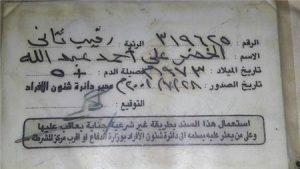 الرقم : ٣١٩٦٢٥ الرتبة : رقيب ثاني
الاسم : الخضر علي أحمد عبد الله
تاريخ الميلاد : ١٩٧٣ فصيلة الدم : O+
تاريخ الصدور : ٢٠٠١/٦/٢٨م مدير دائرة شئون الأفراد
التوقيع :
استعمال هذا السند بطريقة غير شرعية جناية يعاقب عليها
وعلى من يعثر عليه يسلمه الى دائرة شئون الأفراد بوزارة الدفاع او اقرب مركز للشرطة